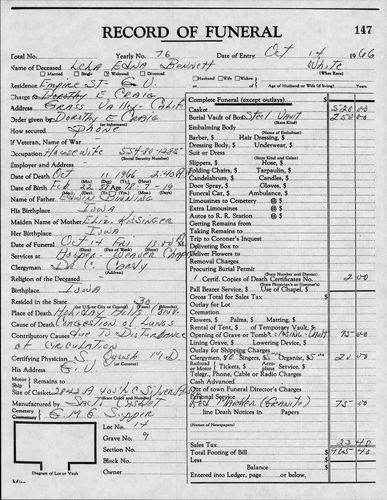 RECORD OF FUNERAL 147
Total No. Yearly No. 76 Date of Entry Oct 14 1966
Name of Deceased Lela Edna Bennett White
Married Single Widowed Divorced Husband Wife Widow (What Race)
Residence Empire St. G.V. or of Age of Husband or Wife (if living)
Charge to Dorothy E Craig
Address Grass Valley - Calif
Order given by Dorothy E Craig
How secured Phone
If Veteran, Name of War
Occupation Housewife 554-80-1285
(Social Security Number)
Employer and Address
Date of Death Oct 11 1966 2:40 A
Date of Birth Feb 22 Age 78-7-19
Name of Father Edwin
His Birthplace Iowa
Maiden Name of Mother Eliz. Kissinger
Her Birthplace Iowa
Date of Funeral Oct 14 Fri 11:00 A
Services at Hooper Weaver Chapel
Clergyman Dr C
Religion of the Deceased
Birthplace Iowa
Resided in the State 30
Place of Death Holiday Hills Conv.
Cause of Death Congestion of Lungs
Contributory Causes Due to Disturbance
of Circulation
Certifying Physician S. (M.D.)
His Address G.V.
Motor Remains Ship to
Size of Casket
Manufactured by Casket
Cemetery
Crematory
Lot No. 14
Grave No. 9
Section No.
Block No.
Owner
Diagram of Lot or Vault
Complete Funeral (except outlays) $
Casket 520 00
Burial Vault or Box Steel Vault 250 00
(State Kind)
Embalming Body
(Name of Embalmer)
Barber, $ Hair Dressing, $
Dressing Body, $ Underwear, $
Suit or Dress
(State Kind and Color)
Slippers, $ Hose, $
Folding Chairs, $ Tarpaulin, $
Candelabrum, $ Candles, $
Door Spray, $ Gloves, $
Funeral Car, $ Ambulance, $
Limousines to Cemetery @ $
Extra Limousines @ $
Autos to R. R. Station @ $
Getting Remains from
Taking Remains to
Trip to Coroner's Inquest
Delivering Box to
Deliver Flowers to
Removal Charges
Procuring Burial Permit
(State Number and Doctor)
1 Certif. Copies of Death Certificates No. 2 00
(State Physician's or Coroner's)
Pall Bearer Service, $ Use of Chapel, $
Gross Total for Sales Tax $
Outlay for Lot
Cremation
Flowers, $ Palms, $ Matting, $
Rental of Tent, $ of Temporary Vault, $
Opening of Grave or Tomb 75 00
Lining Grave, $ Lowering Device, $
Outlay for Shipping Charges
Clergyman, $ Singers, $ Organist, $
Railroad Tickets, $ Aero-plane Service, $
Teleg., Phone, Cable or Radio Charges
Cash Advanced
Out of town Funeral Director's Charges
Personal Service
Marker (Granite) 75 00
line Death Notices in Papers
(Names of Newspapers)
Sales Tax 23 40
Total Footing of Bill $965 40
Less $
Balance $
Entered into Ledger, page or below.